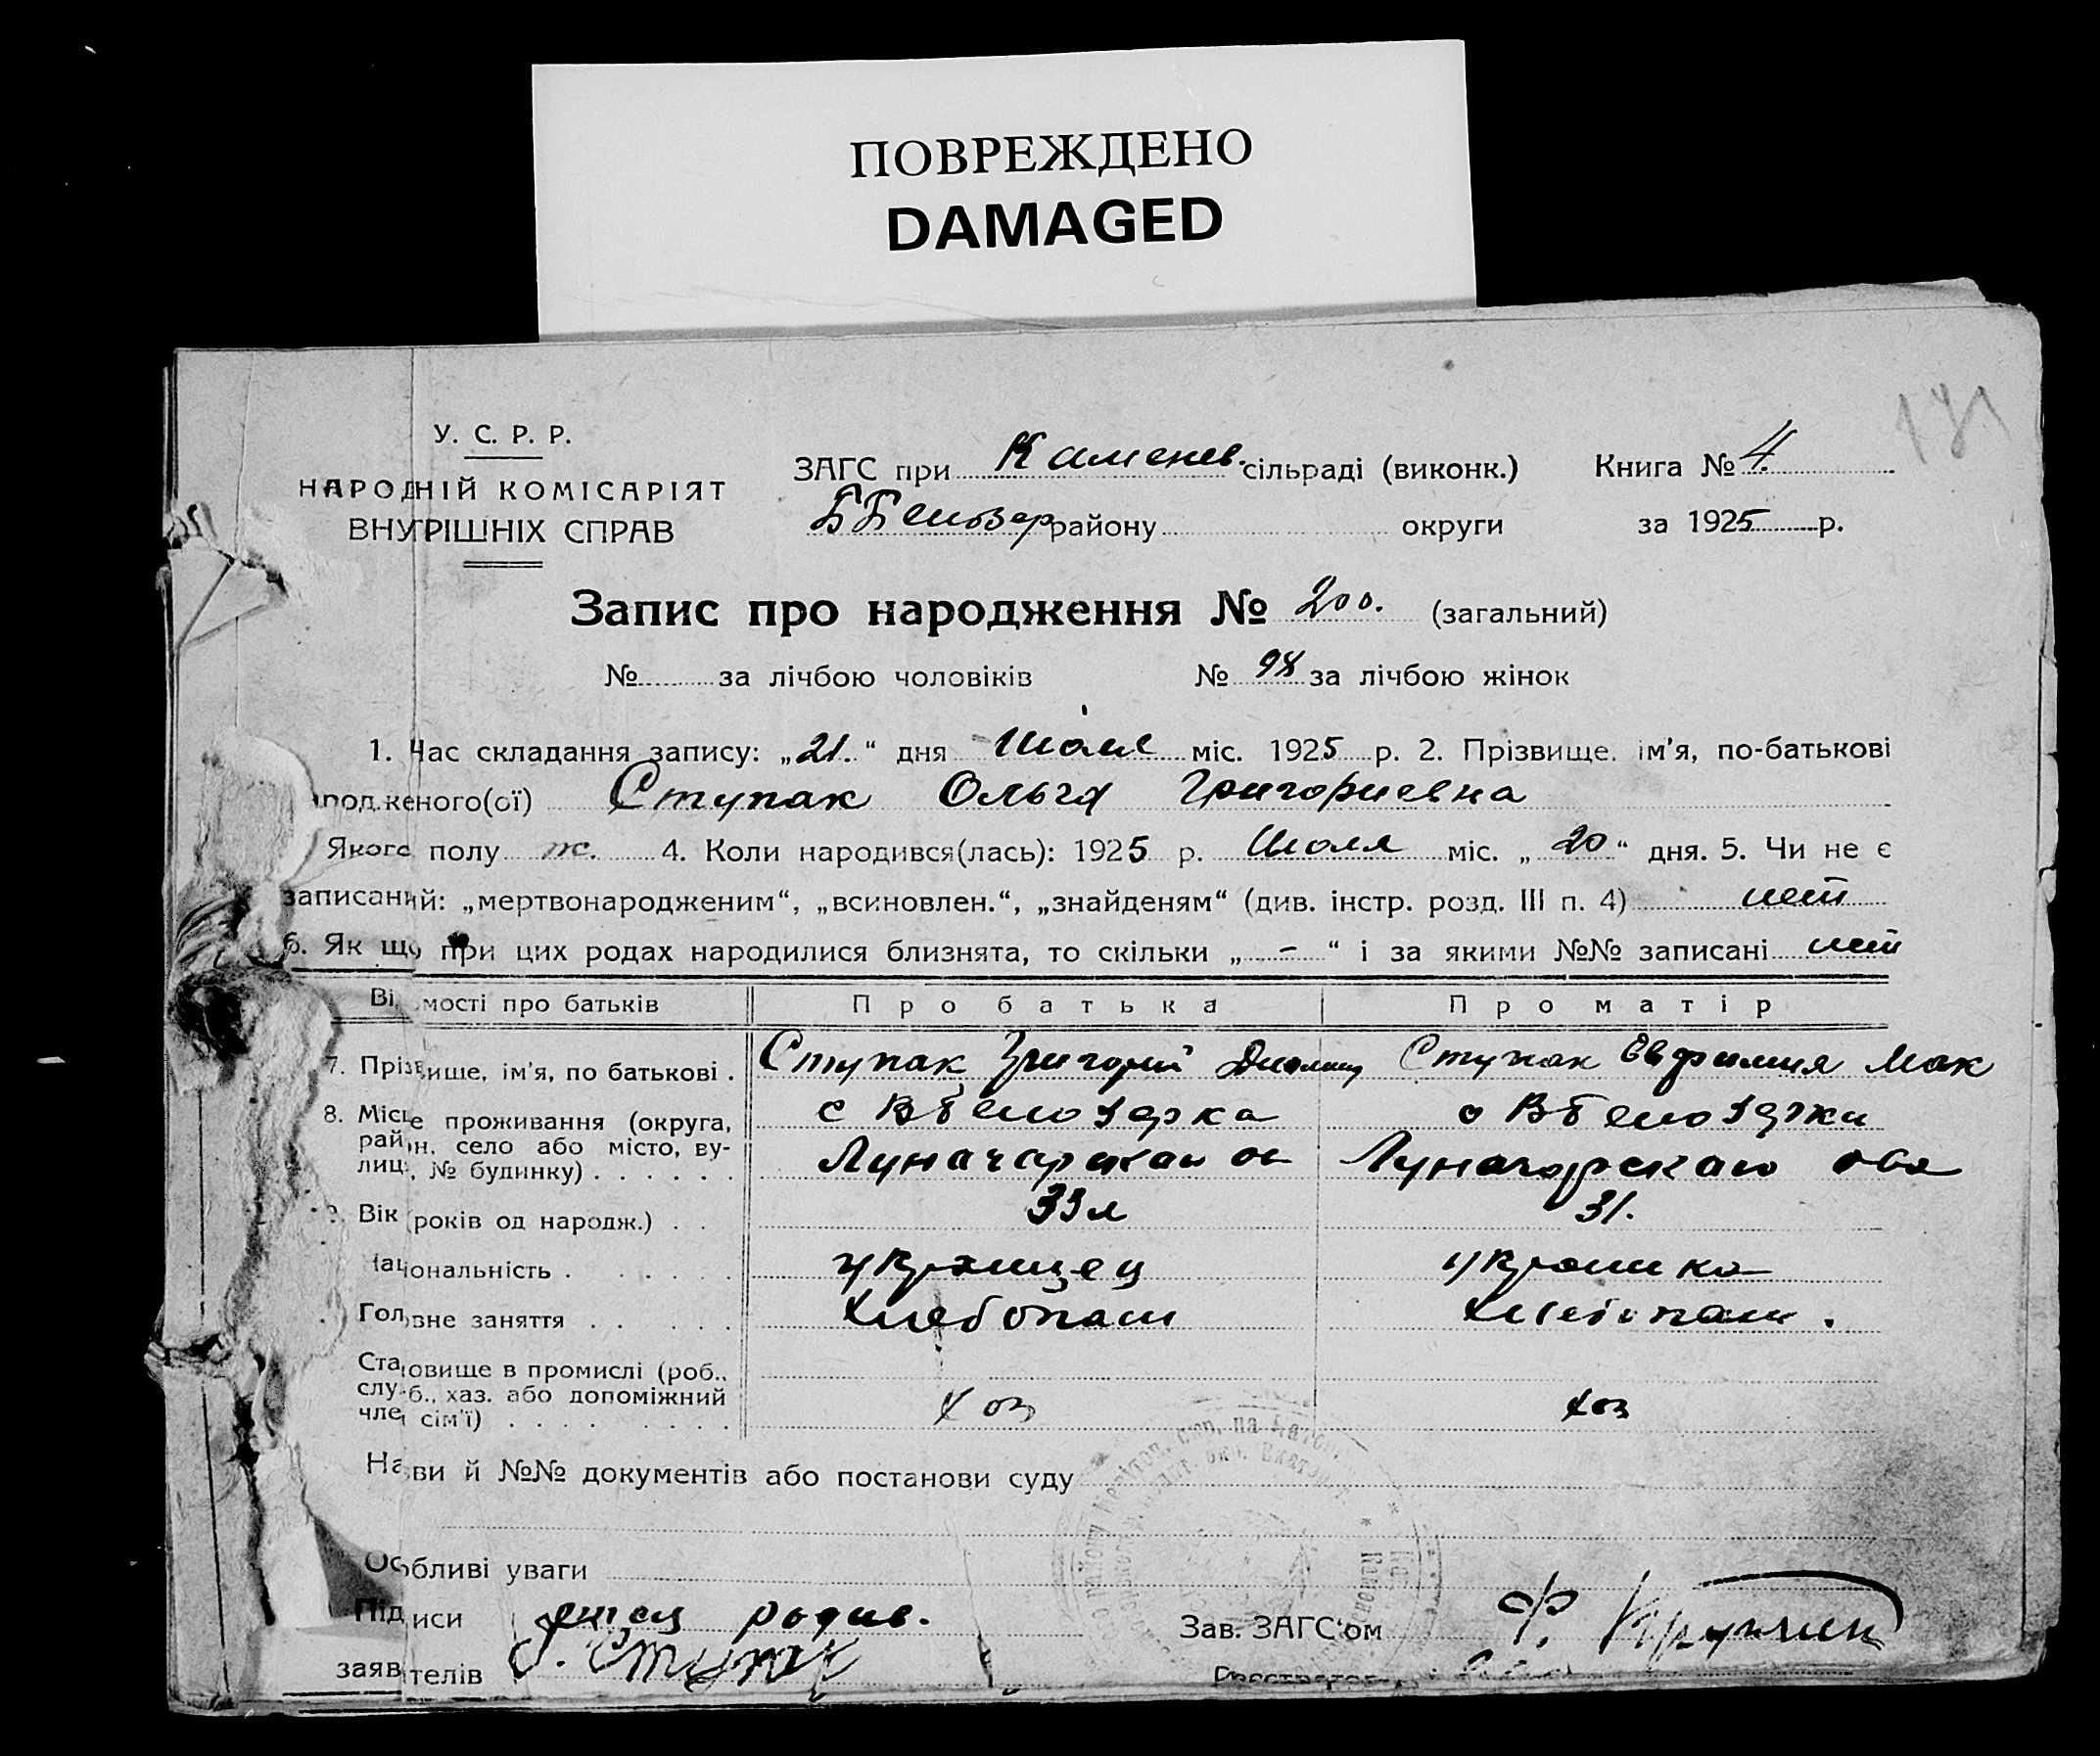 ПОВРЕЖДЕНО
DAMAGED
У. С. Р. Р.
НАРОДНІЙ КОМІСАРІЯТ
ВНУТРІШНІХ СПРАВ
ЗАГС при Каменев. сільраді (виконк.) Книга № 4.
району округи за 1925 р.
Запис про народження № 200. (загальний)
№ за лічбою чоловіків № 98 за лічбою жінок
1. Час складання запису: „21.“ дня Июля міс. 1925 р. 2. Прізвище, ім'я, по-батькові
народженого(ої) Ступак Ольга Григориевна
Якого полу ж. 4. Коли народився(лась): 1925 р. Июля міс. „20“ дня. 5. Чи не є
записаний: „мертвонародженим“, „всиновлен.“, „знайденям“ (див. інстр. розд. III п. 4) нет
6. Як що при цих родах народилися близнята, то скільки „ - “ і за якими №№ записані нет
Відомості про батьків Про батька Про матір
7. Прізвище, ім'я, по батькові . Ступак Григорий Ступак Евфимия Мак
8. Місце проживання (округа, район, село або місто, вулиця, № будинку) . . . . . .
с ВБелозерка
Луначарская
33 л 31.
9. Вік (років од народж.) . .
Національність . . . . . . украинец украинка
Головне заняття . . . . . Хлебопаш Хлебопаш.
Становище в промислі (роб.,
служб., хаз. або допоміжний
член сім'ї) . . . . . . . . Хоз Хоз
Назви й №№ документів або постанови суду
Особливі уваги
Підписи отец родив. Зав. ЗАГС'ом Ф.
заявителів Ступак